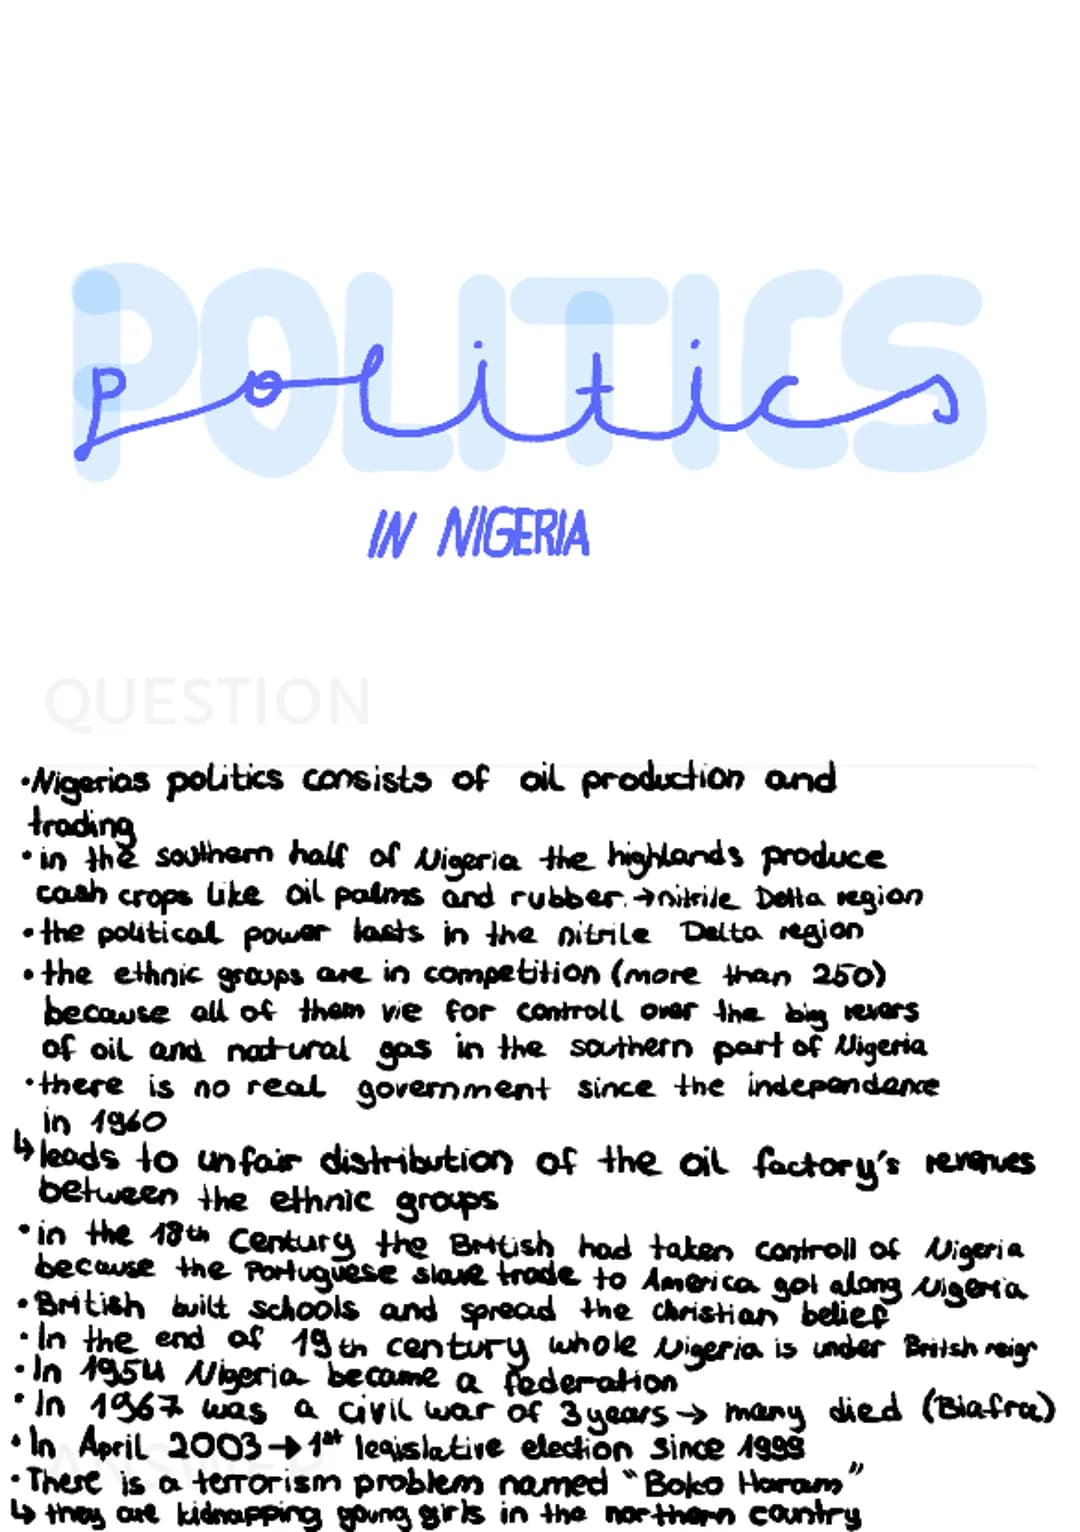 POLITICS
politics
IN NIGERIA
QUESTION
•Nigerias politics consists of oil production and
trading
•in the southern half of Nigeria the highlands produce
cash crops like oil palms and rubber.→nitrile Delta region
•the political power lasts in the nitrile Delta region
•the ethnic groups are in competition (more than 250)
because all of them vie for controll over the big revers
of oil and natural gas in the southern part of Nigeria
•there is no real government since the independence
in 1960
↳leads to unfair distribution of the oil factory's revenues
between the ethnic groups
•in the 18th Century the British had taken controll of Nigeria
because the Portuguese slave trade to America got along Nigeria
•British built schools and spread the christian belief
•In the end of 19th century whole Nigeria is under British reign
•In 1954 Nigeria became a federation
•In 1967 was a civil war of 3 years→ many died (Biafra)
•In April 2003→1st legislative election since 1999
•There is a terrorism problem named "Boko Haram"
↳ they are kidnapping young girls in the northern country